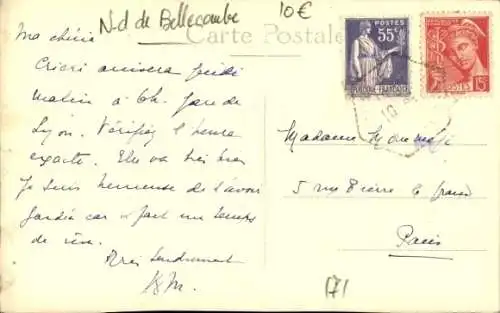 N.d de Bellecombe
10€
Carte Postale
Ma chérie
Cricri arrivera jeudi
matin à 6h. gare de
Lyon. Vérifiez l'heure
exacte. Elle va très bien
Je suis heureuse de l'avoir
gardée car il fait un temps
de rêve.
Très tendrement
POSTES
55c
POSTES
15c
Madame
5 rue Pierre le
Paris
171